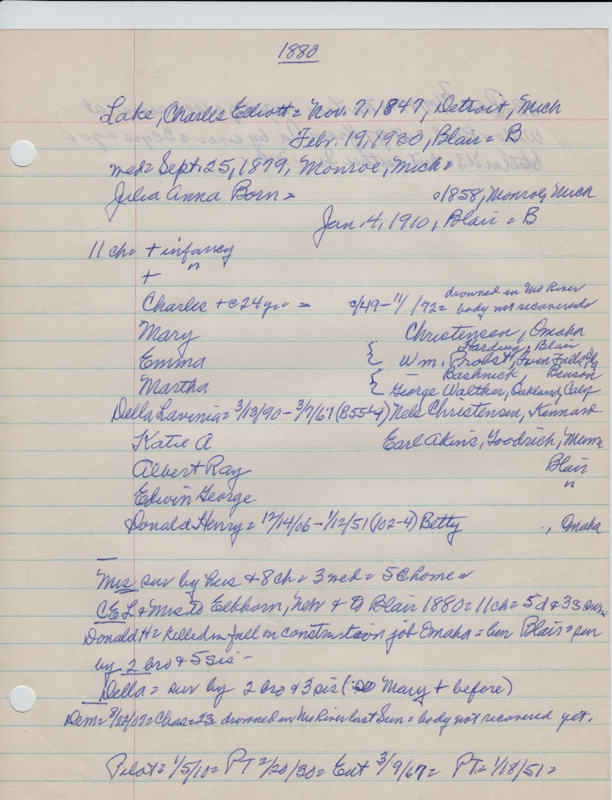 1880
Lake, Charles Elliott = Nov. 7, 1847, Detroit, Mich
Febr. 19, 1930, Blair = B
med = Sept. 25, 1879, Monroe, Mich =
Julia Anna Born = 1858, Monroe, Mich
Jan. 4, 1910, Blair = B
11 ch = + infancy
+ "
Charles + c 24 yr = c/49 - 11/172 = drowned in Mo River body not recovered
Mary Christensen, Omaha
Emma { Harding, Blair
Wm. Probst, Twin Falls, Ida
Martha { Bashnick, Benson
George Walther, Oakland, Calif
Della Lavinia = 3/13/90 - 3/7/67 (855-4) Nels Christensen, Kennard
Katie A Earl Akins, Goodrich, Minn
Albert Ray Blair
Edwin George "
Donald Henry = 12/14/06 - 1/12/51 (102-4) Betty , Omaha
Mrs sur by hus & 8 ch = 3 med = 5 @ home =
CEL & Mrs to Elkhorn, Neb & to Blair 1880 = 11 ch = 5 d & 3 s sur
Donald H = killed in fall on construction job Omaha = bur Blair = sur
by 2 bro & 5 sis -
Della = sur by 2 bro & 3 sis (: so Mary + before)
Dem = 8/22/07 = Chas = 23 drowned in Mo River last Sun = body not recovered yet.
Pilot = 1/5/10 = PT 2/20/30 = Ent 3/9/67 = PT = 1/18/51 =